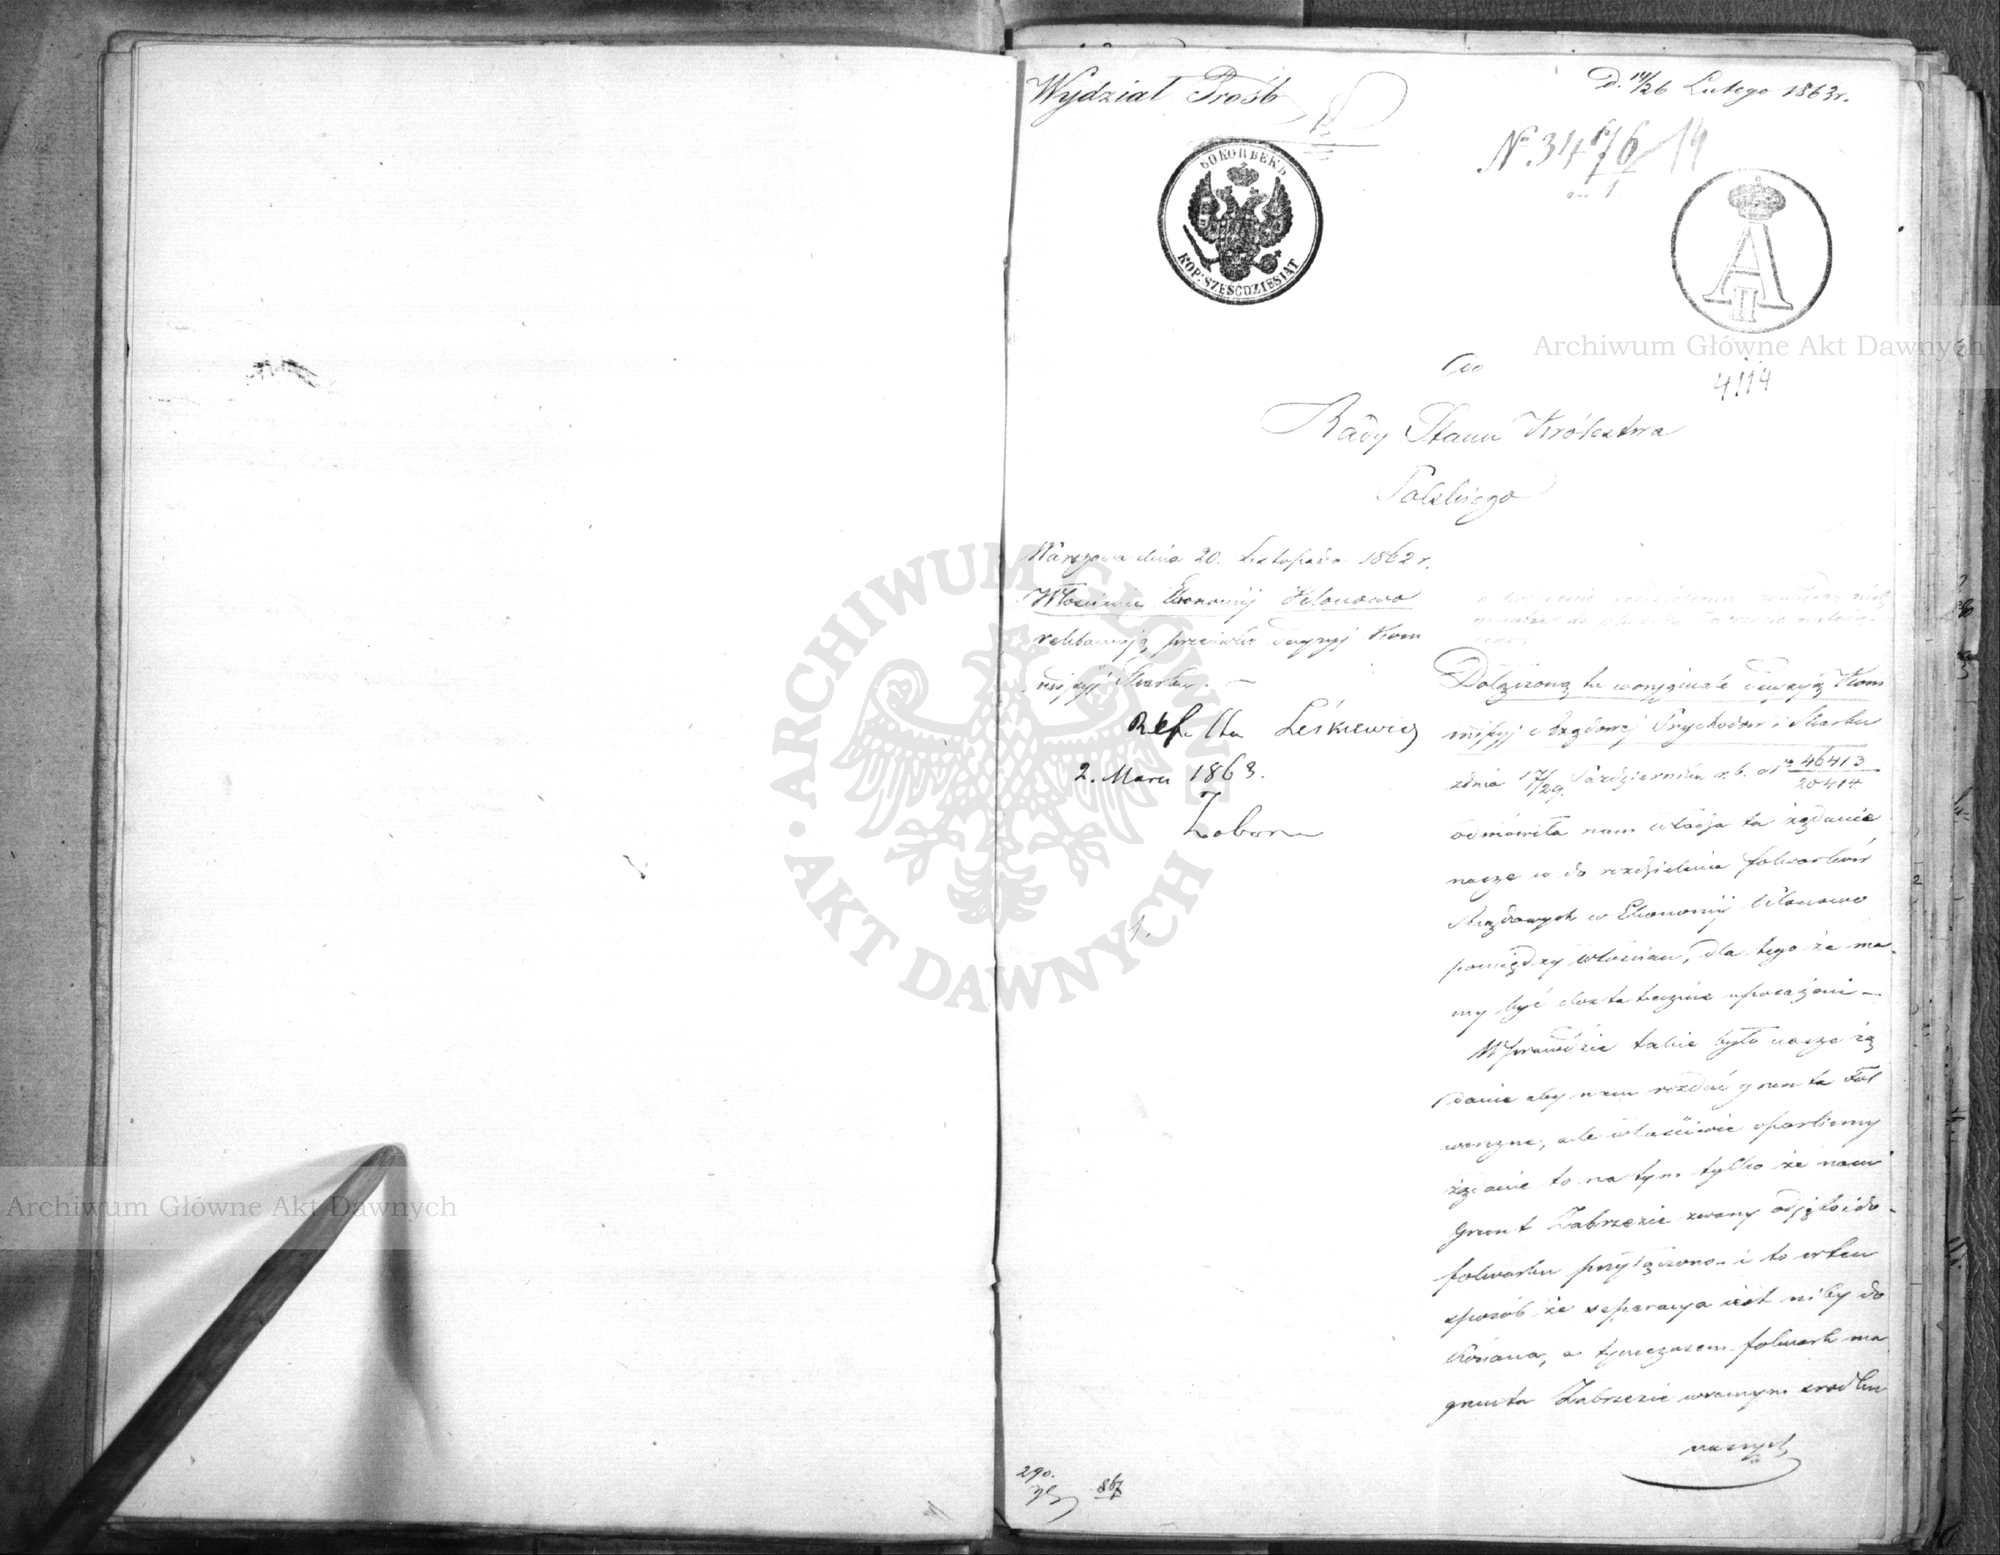 Wydział Próśb
D. 14/26 Lutego 1863 r.
No. 3476/14
60 KOP
KOP: SZEŚĆDZIESIĄT
A II
Archiwum Główne Akt Dawnych
4114
Do
Rady Stanu Królestwa
Polskiego
Warszawa dnia 20. Listopada 1862 r.
Włościanie Ekonomij Klonowo
reklamują przeciw Decyzyj Kom
misyj Skarbu. —
Ref. Leśkiewicz
2. Marca 1863.
1.
Dołączoną tu w oryginale Decyzyą Kom
misyj Rządowej Przychodów i Skarbu
z dnia 17/29. Października r. b. No 46413/20414
odmówiła nam władza ta żądanie
nasze w do rozdzielenia folwarków
Rządowych w Ekonomij Klonowo
pomiędzy włościan, dla tego że ma
my być dostatecznie uposażeni —
Wprawdzie takie było nasze żą
danie aby nam rozdać grunta Fol
warczne, ale właściwie oparliśmy
żądanie to na tym tylko że nam
Grunt Zabrzezie zwany odjęto i do
folwarku przyłączono i to w ten
sposób że seperacya jest niby do
konana, a tymczasem folwark ma
grunta Zabrzezie w samym środku
naszych
290.
867
ARCHIWUM GŁÓWNE AKT DAWNYCH
Archiwum Główne Akt Dawnych